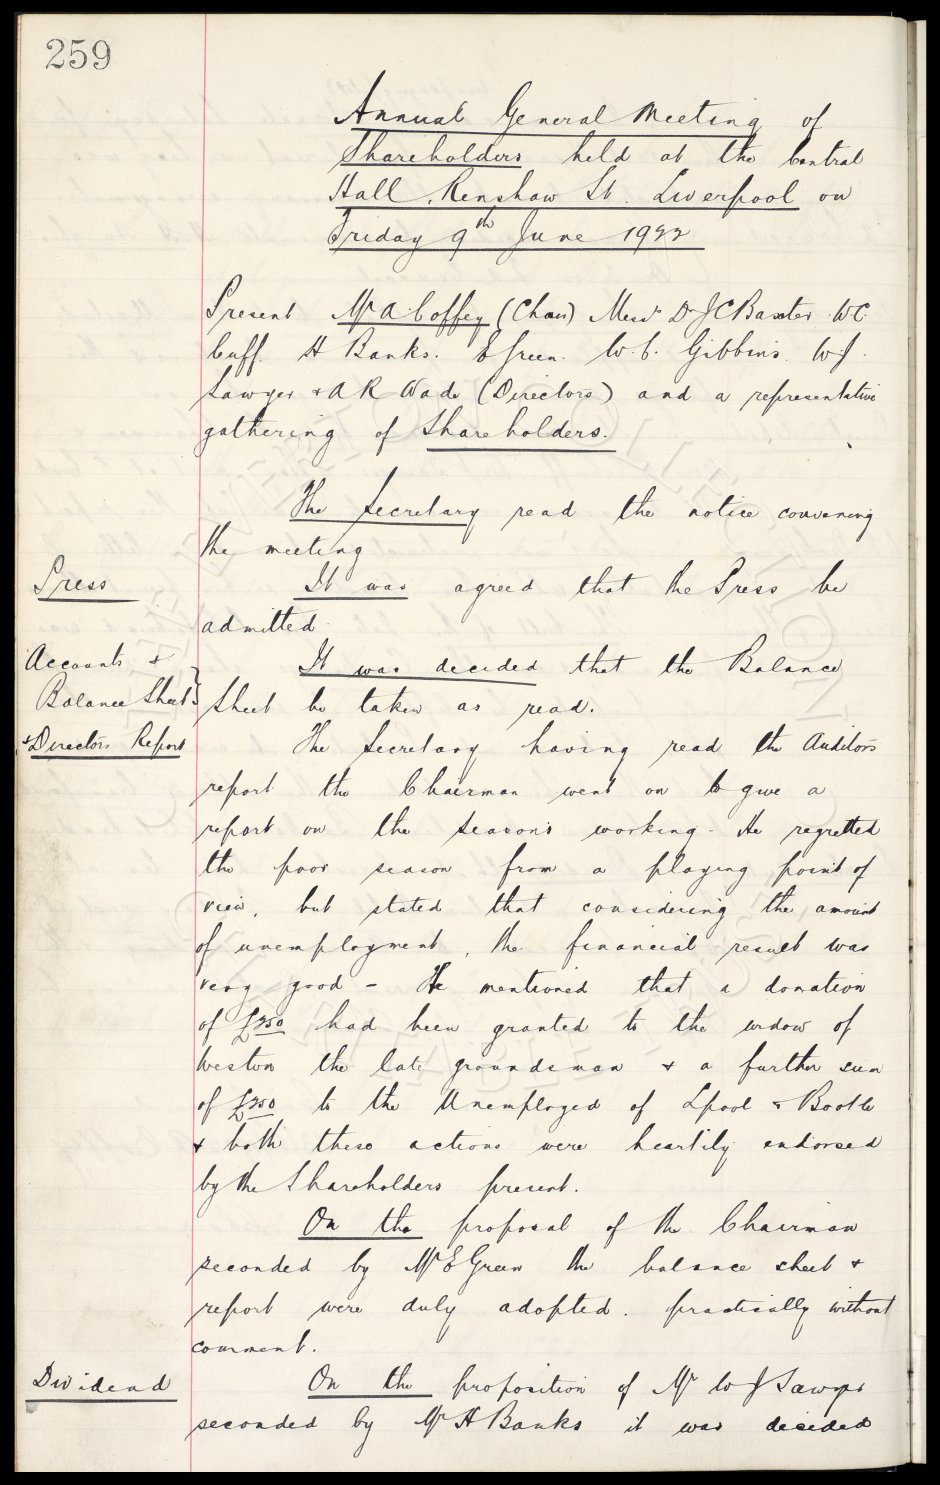 259
Annual General Meeting of
Shareholders held at the Central
Hall, Renshaw St. Liverpool on
Friday 9th June 1922
Present Mr A Coffey (Chair) Messrs Dr J C Baxter W C
Cuff. H Banks. E Green. W. C. Gibbins. W J.
Sawyer & A R Wade (Directors) and a representative
gathering of Shareholders.
The Secretary read the notice convening
the meeting
Press
It was agreed that the Press be
admitted.
Accounts &
Balance Sheet
& Directors Report
It was decided that the Balance
Sheet be taken as read.
The Secretary having read the Auditors
report the Chairman went on to give a
report on the Season's working - He regretted
the poor season from a playing point of
view, but stated that considering the amount
of unemployment, the financial result was
very good - He mentioned that a donation
of £250 had been granted to the widow of
Weston the late groundsman & a further sum
of £250 to the Unemployed of Lpool & Bootle
& both these actions were heartily endorsed
by the Shareholders present.
On the proposal of the Chairman
seconded by Mr E Green the balance sheet &
report were duly adopted. practically without
comment.
Dividend
On the proposition of Mr W J Sawyer
seconded by Mr H Banks it was decided